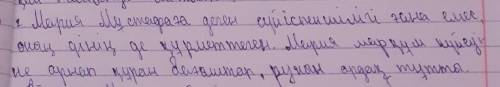 Мария Мұстафаға деген сүйіспеншілігі ғана емес,
оның дінін де құрметтеген. Мария марқұм күйеуі-
не арнап құран бағыштап, рухын ардақ тұтты.